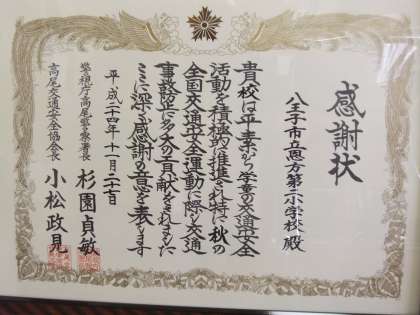 感謝状
八王子市立恩方第二小学校殿
貴校は平素から学童の交通安全
活動を積極的に推進され特に秋の
全国交通安全運動に際し交通
事故防止に多大の貢献をされました
ここに深く感謝の意を表します
平成二十四年十一月二十一日
警視庁高尾警察署長 杉園貞敏
高尾交通安全協会長 小松政見